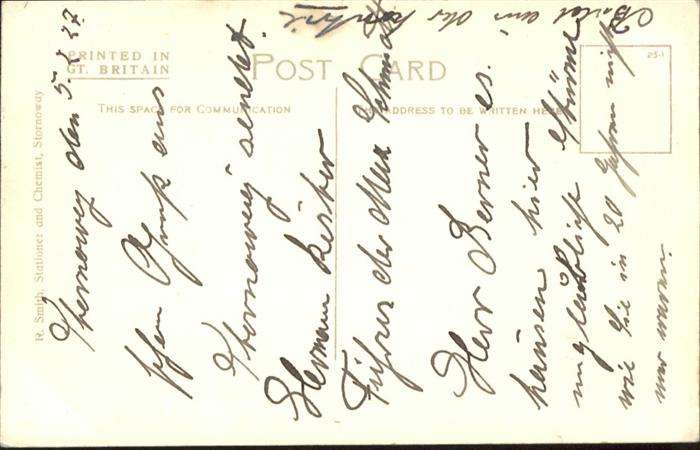 PRINTED IN
GT. BRITAIN
POST CARD
THIS SPACE FOR COMMUNICATION
THE ADDRESS TO BE WRITTEN HERE
R. Smith, Stationer and Chemist, Stornoway
Stornoway den 5. 2. 27
Gruß aus
Stornoway sendet.
Hermann Küster
Führer der Max Schmidt
Herr Berner es
hausen hier
unglaubliche Stürme
wie Sie in 20 Jahren nicht
war waren.
aus der